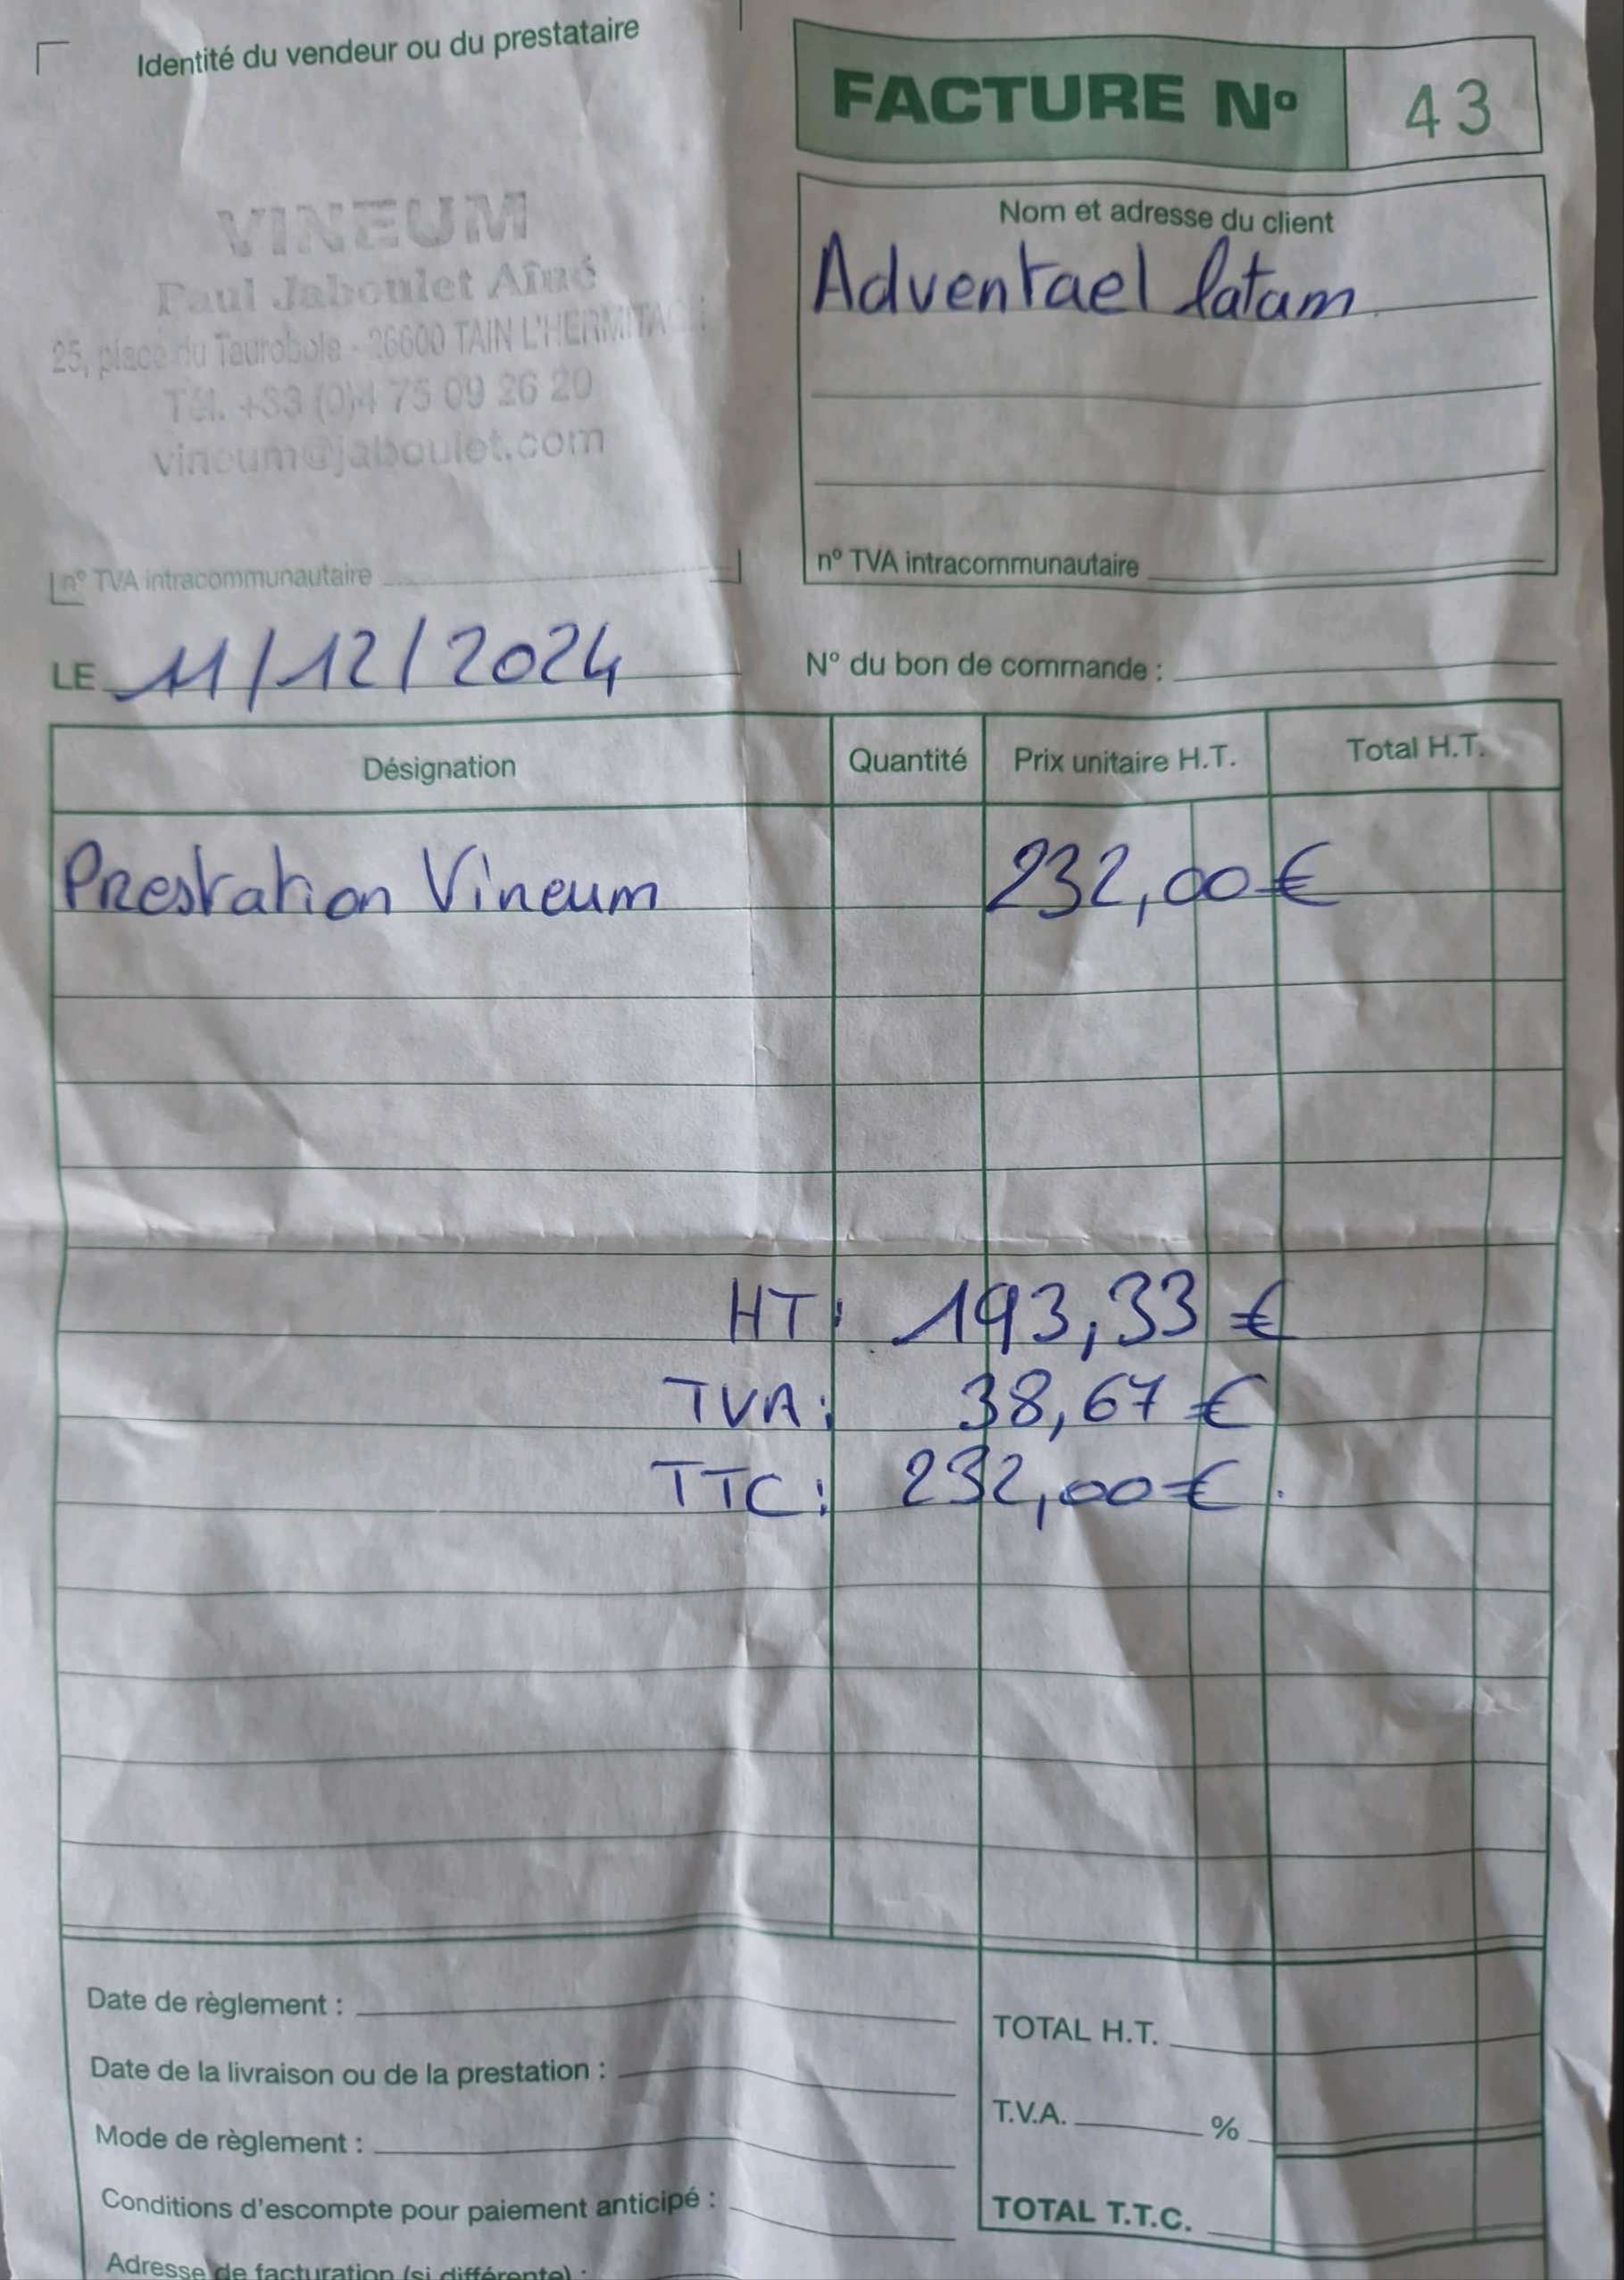 Identité du vendeur ou du prestataire
FACTURE Nº 43
VINEUM
Paul Jaboulet Aîné
25, place du Taurobole - 26600 TAIN L'HERMITAGE
Tél. +33 (0)4 75 09 26 20
vineum@jaboulet.com
nº TVA intracommunautaire
Nom et adresse du client
Adventael latam
nº TVA intracommunautaire
LE 11/12/2024
N° du bon de commande :
Désignation Quantité Prix unitaire H.T. Total H.T.
Prestation Vineum 232,00 €
HT: 193,33 €
TVA: 38,67 €
TTC: 232,00 €
Date de règlement :
Date de la livraison ou de la prestation :
Mode de règlement :
Conditions d'escompte pour paiement anticipé :
Adresse de facturation (si différente) :
TOTAL H.T.
T.V.A. %
TOTAL T.T.C.